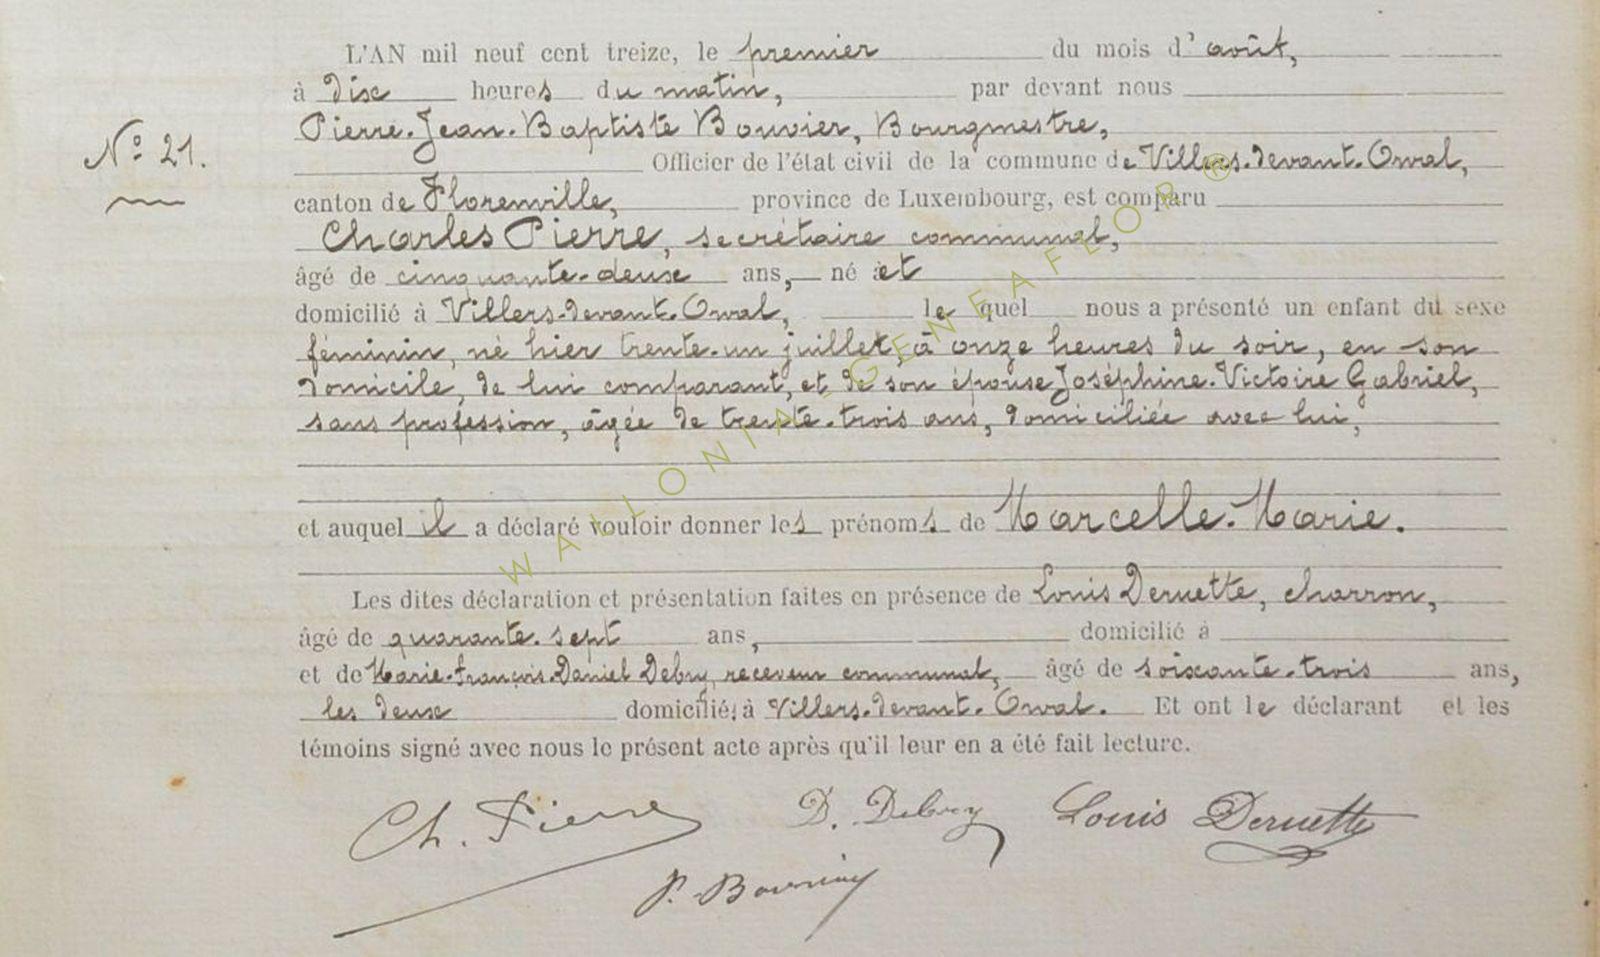 L'AN mil neuf cent treize, le premier du mois d'août,
à dix heures du matin, par devant nous
Pierre-Jean-Baptiste Bouvier, Bourgmestre,
N° 21.
Officier de l'état civil de la commune de Villers-devant-Orval,
canton de Florenville, province de Luxembourg, est comparu
Charles Pierre, secrétaire communal,
âgé de cinquante-deux ans, né à et
domicilié à Villers-devant-Orval, le quel nous a présenté un enfant du sexe
féminin, né hier trente-un juillet à onze heures du soir, en son
domicile, de lui comparant, et de son épouse Joséphine-Victoire Gabriel,
sans profession, âgée de trente-trois ans, domiciliée avec lui,
et auquel il a déclaré vouloir donner les prénoms de Marcelle-Marie.
Les dites déclaration et présentation faites en présence de Louis Deruette, charron,
âgé de quarante-sept ans, domicilié à
et de Marie-François-Daniel Debry, receveur communal, âgé de soixante-trois ans,
les deux domiciliés à Villers-devant-Orval. Et ont le déclarant et les
témoins signé avec nous le présent acte après qu'il leur en a été fait lecture.
Ch. Pierre D. Debry Louis Deruette
P. Bouvier
WALLONIA-GENEAFLOR®